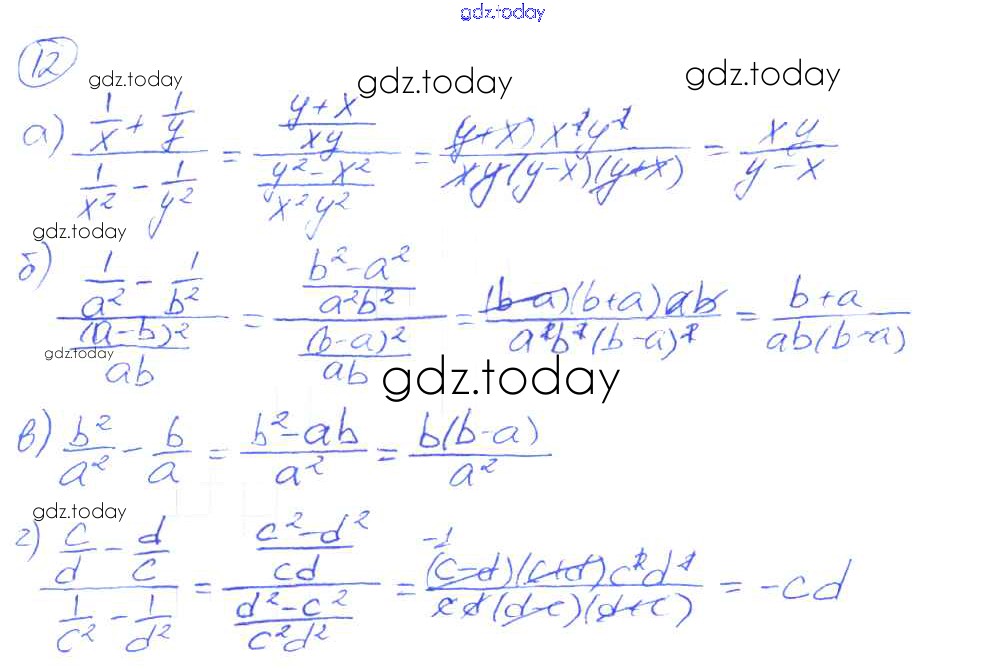 gdz.today
12
gdz.today gdz.today gdz.today
а) (1/x + 1/y)/(1/x² - 1/y²) = ((y+x)/(xy))/((y²-x²)/(x²y²)) = ((y+x)x²y²)/(xy(y-x)(y+x)) = xy/(y-x)
gdz.today
б) (1/a² - 1/b²)/((a-b)²/(ab)) = ((b²-a²)/(a²b²))/((b-a)²/(ab)) = ((b-a)(b+a)ab)/(a²b²(b-a)²) = (b+a)/(ab(b-a))
gdz.today
gdz.today
в) b²/a² - b/a = (b²-ab)/a² = b(b-a)/a²
gdz.today
г) (c/d - d/c)/(1/c² - 1/d²) = ((c²-d²)/(cd))/((d²-c²)/(c²d²)) = (-1 (c-d)(c+d)c²d²)/(cd(d-c)(d+c)) = -cd